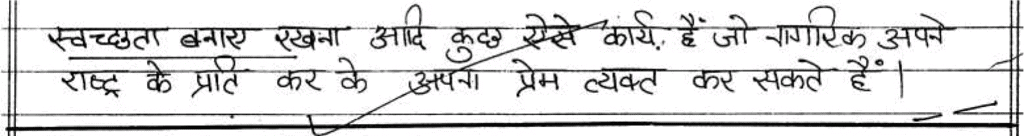 स्वच्छता बनाए रखना आदि कुछ ऐसे कार्य हैं जो नागरिक अपने
राष्ट्र के प्रति कर के अपना प्रेम व्यक्त कर सकते हैं।